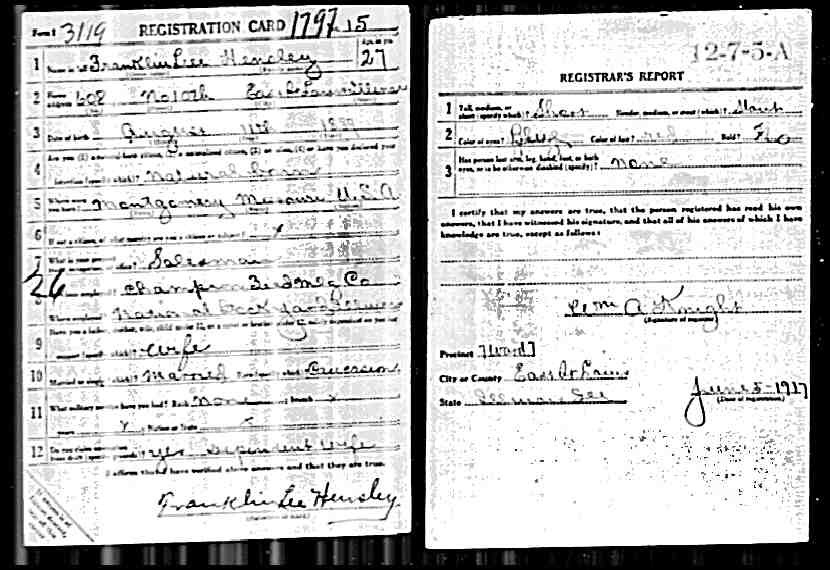 Form 1 3119 REGISTRATION CARD 1797 15
1 Name in full Franklin Lee Hensley Age, in yrs. 27
2 Home address 608 No 10th East St Louis Illinois
3 Date of birth August 11th
4 Are you (1) a natural born citizen, (2) a naturalized citizen, (3) an alien, (4) or have you declared your
intention (specify which)? Natural born
5 Where were you born? Montgomery Missouri U.S.A
6 If not a citizen, of what country are you a citizen or subject? x
7 What is your present trade, occupation, or office? Salesman
26 By whom employed? Champion Feed Mfg Co
Where employed? National Stock Yards Illinois
9 Have you a father, mother, wife, child under 12, or a sister or brother under 12, solely dependent on you for
support (specify which)? Wife
10 Married or single (which)? Married Race (specify which)? Caucasion
11 What military service have you had? Rank None branch x
years x Nation or State
12 Do you claim exemption from draft (specify grounds)? Yes Dependent Wife
I affirm that I have verified above answers and that they are true.
Franklin Lee Hensley
(Signature or mark)
12-7-5-A
REGISTRAR'S REPORT
1 Tall, medium, or short (specify which)? Short Slender, medium, or stout (which)? Stout
2 Color of eyes? Color of hair? red Bald? No
3 Has person lost arm, leg, hand, foot, or both eyes, or is he otherwise disabled (specify)? none
I certify that my answers are true, that the person registered has read his own
answers, that I have witnessed his signature, and that all of his answers of which I have
knowledge are true, except as follows:
A Knight
(Signature of registrar)
Precinct 7 Ward 7
City or County East St Louis
State
June 5-1917
(Date of registration)